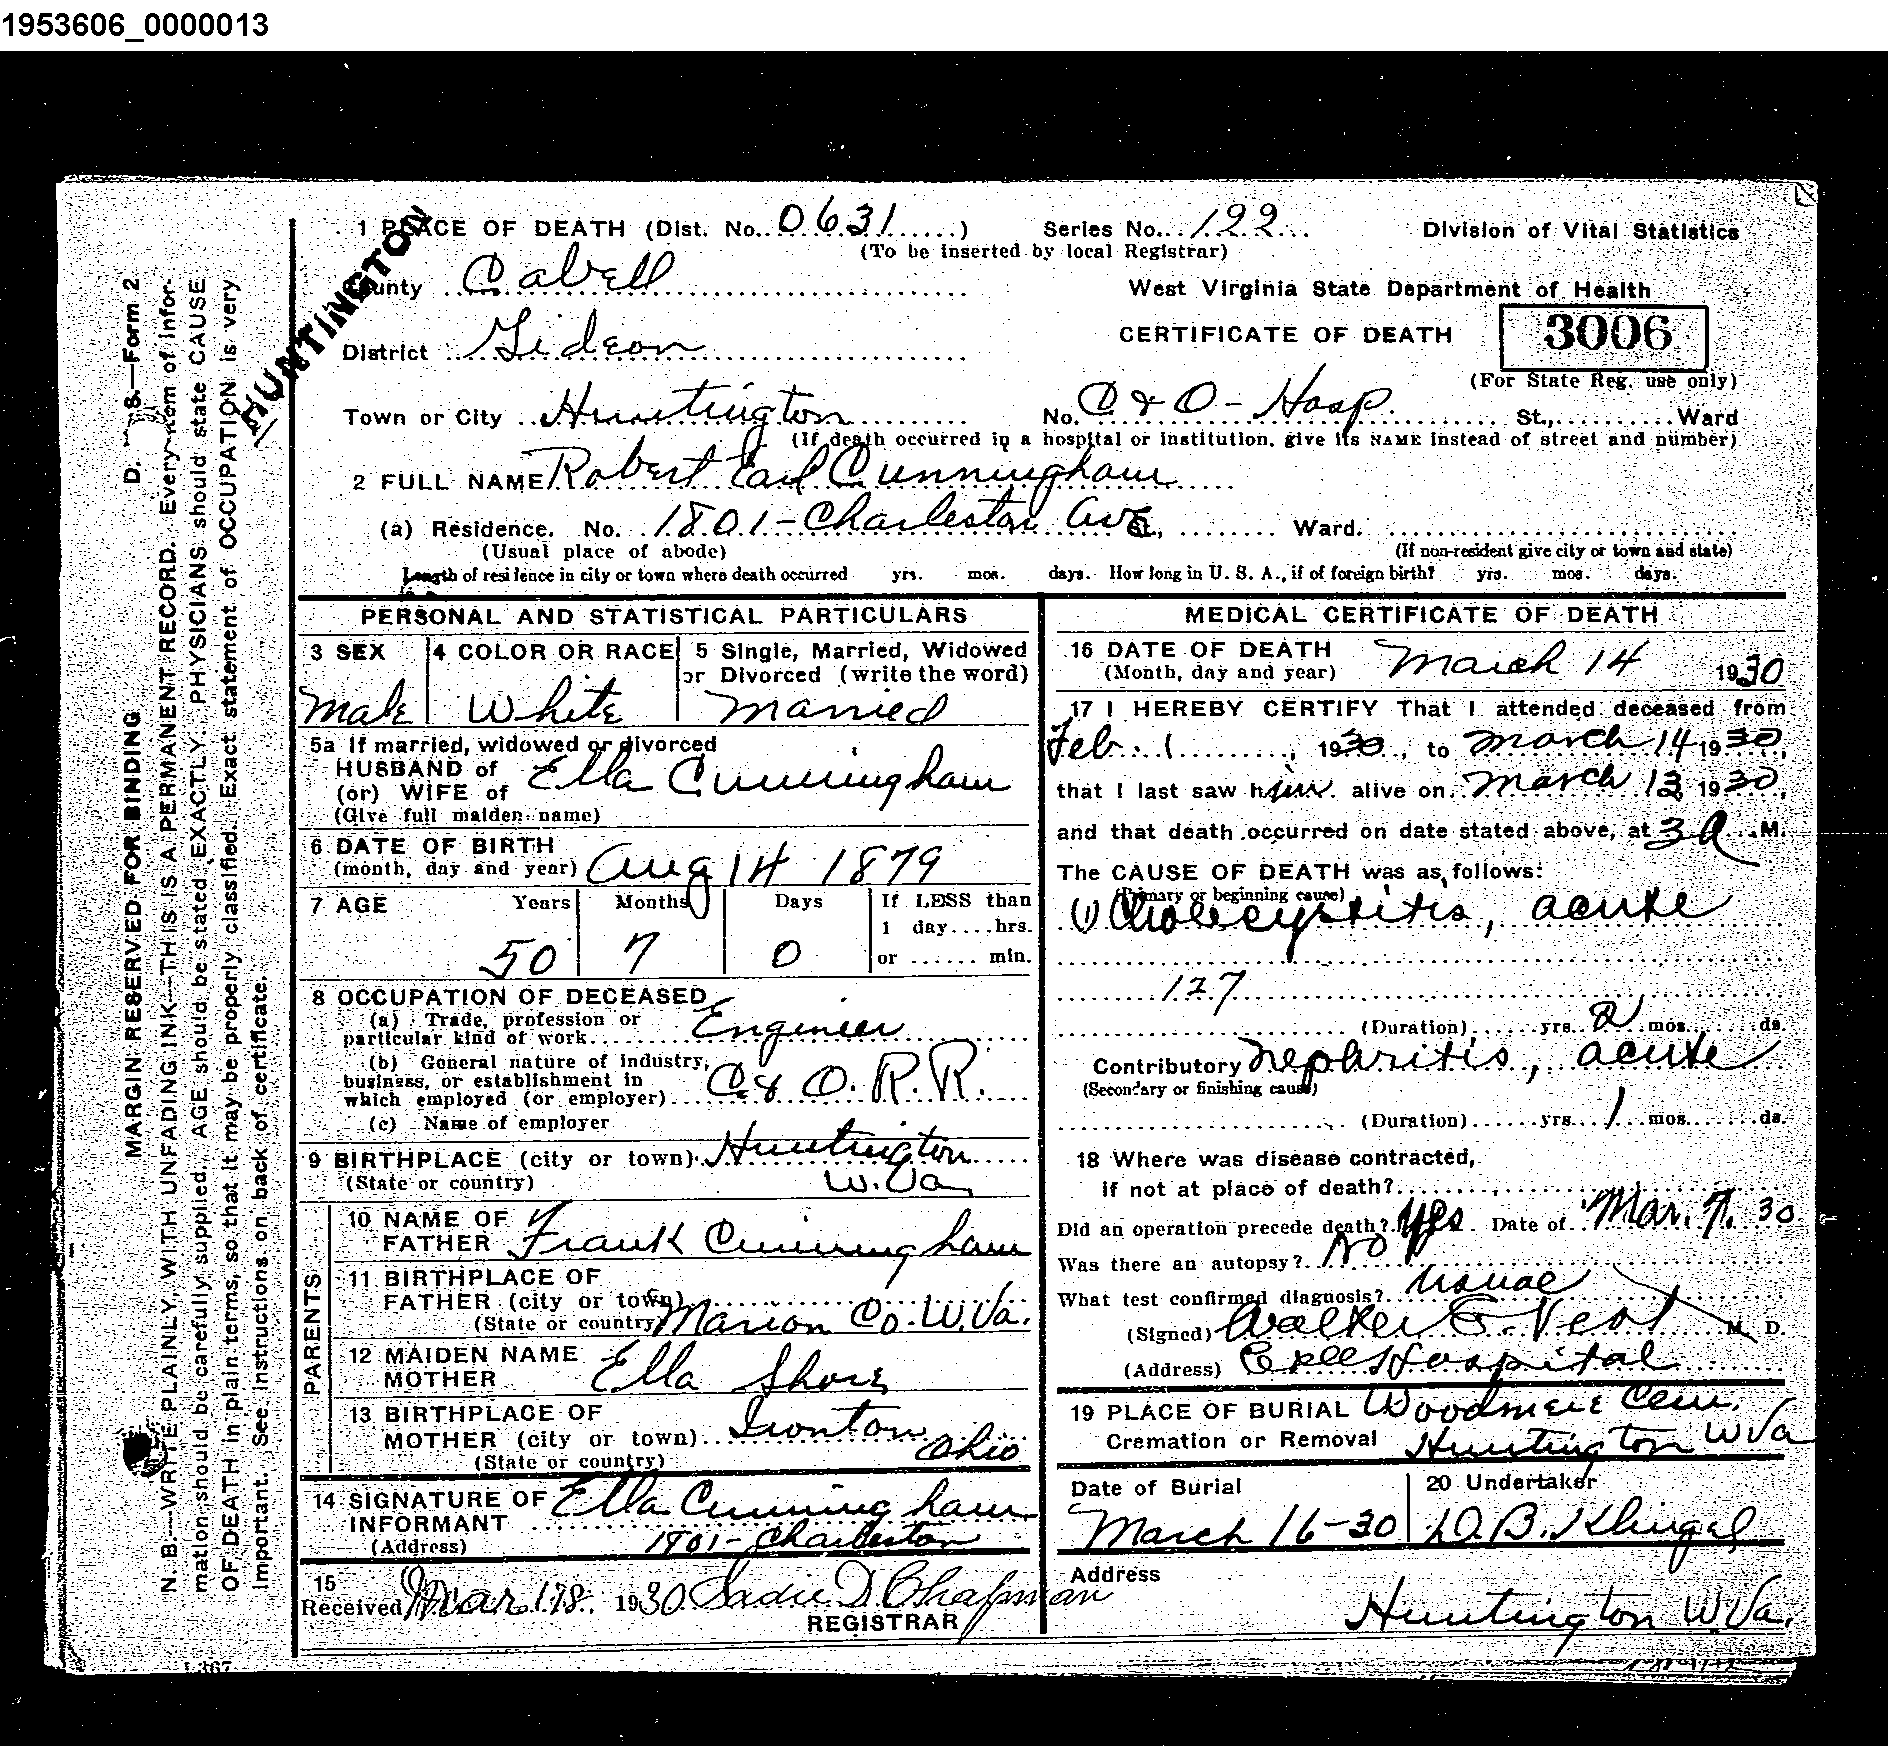 1953606_0000013
HUNTINGTON
1 PLACE OF DEATH (Dist. No. 0631 ) Series No. 122 Division of Vital Statistics
(To be inserted by local Registrar)
County Cabell West Virginia State Department of Health
District Gideon CERTIFICATE OF DEATH 3006
(For State Reg. use only)
Town or City Huntington No. C & O - Hosp. St., Ward
(If death occurred in a hospital or institution, give its NAME instead of street and number)
2 FULL NAME Robert Earl Cunningham
(a) Residence. No. 1801 - Charleston Ave, Ward.
(Usual place of abode) (If non-resident give city or town and state)
Length of residence in city or town where death occurred yrs. mos. days. How long in U. S. A., if of foreign birth? yrs. mos. days.
PERSONAL AND STATISTICAL PARTICULARS
3 SEX 4 COLOR OR RACE 5 Single, Married, Widowed
or Divorced (write the word)
Male White Married
5a If married, widowed or divorced
HUSBAND of Ella Cunningham
(or) WIFE of
(Give full maiden name)
6 DATE OF BIRTH
(month, day and year) Aug 14 1879
7 AGE Years Months Days If LESS than
1 day....hrs.
50 7 0 or ...... min.
8 OCCUPATION OF DECEASED
(a) Trade, profession or
particular kind of work Engineer
(b) General nature of industry,
business, or establishment in
which employed (or employer) C & O. R. R.
(c) Name of employer
9 BIRTHPLACE (city or town) Huntington
(State or country) W. Va
PARENTS
10 NAME OF
FATHER Frank Cunningham
11 BIRTHPLACE OF
FATHER (city or town)
(State or country) Marion Co. W. Va.
12 MAIDEN NAME
MOTHER Ella Shore
13 BIRTHPLACE OF
MOTHER (city or town) Ironton
(State or country) Ohio
14 SIGNATURE OF
INFORMANT Ella Cunningham
(Address) 1801 - Charleston
15
Received Mar 18. 1930 Sadie D. Chapman
REGISTRAR
MEDICAL CERTIFICATE OF DEATH
16 DATE OF DEATH
(Month, day and year) March 14 1930
17 I HEREBY CERTIFY That I attended deceased from
Feb. 1, 1930, to March 14 1930,
that I last saw him alive on March 13 1930,
and that death occurred on date stated above, at 3 a M.
The CAUSE OF DEATH was as follows:
(Primary or beginning cause)
(1) Cholecystitis, acute
127
(Duration) yrs. 2 mos. ds.
Contributory nephritis, acute
(Secondary or finishing cause)
(Duration) yrs. 1 mos. ds.
18 Where was disease contracted,
if not at place of death?
Did an operation precede death? Yes Date of Mar. 7. 30
Was there an autopsy? No
What test confirmed diagnosis? Usual
(Signed) Walter E. Vest M. D.
(Address) Hospital
19 PLACE OF BURIAL Woodmere Cem.
Cremation or Removal Huntington W Va
Date of Burial 20 Undertaker
March 16-30 D. B. Klingel
Address
Huntington W. Va.
D. S.—Form 2
MARGIN RESERVED FOR BINDING
N. B.—WRITE PLAINLY, WITH UNFADING INK—THIS IS A PERMANENT RECORD. Every item of infor-
mation should be carefully supplied. AGE should be stated EXACTLY. PHYSICIANS should state CAUSE
OF DEATH in plain terms, so that it may be properly classified. Exact statement of OCCUPATION is very
important. See instructions on back of certificate.